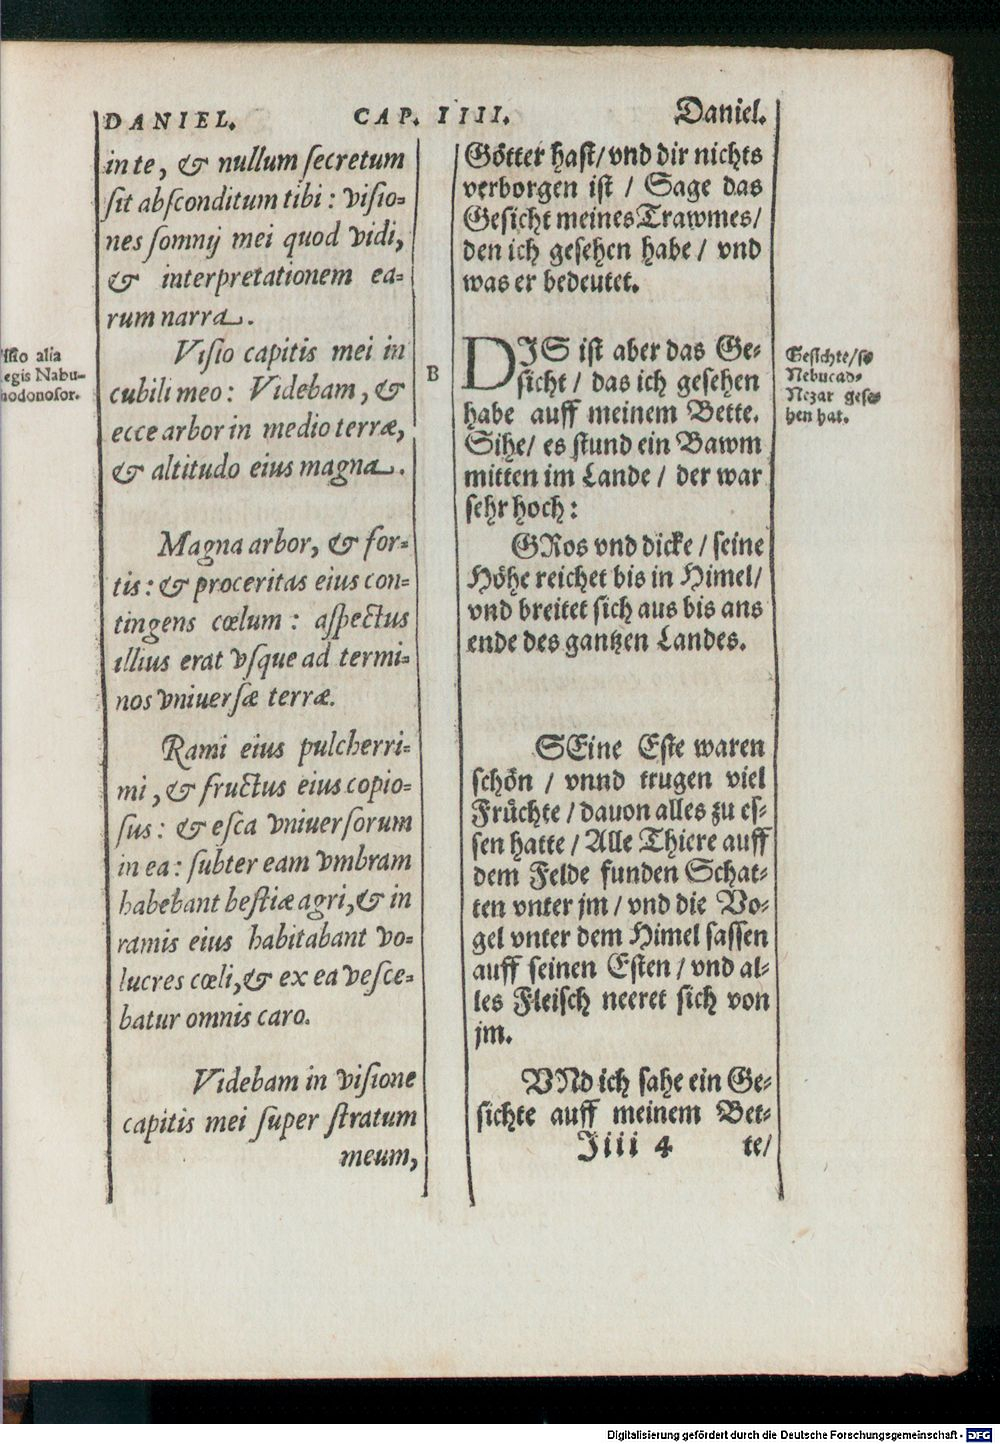 DANIEL. CAP. IIII. Daniel.
in te, & nullum ſecretum
ſit abſconditum tibi: viſio-
nes ſomnij mei quod vidi,
& interpretationem ea-
rum narra.
alia
egis Nabu-
hodonoſor.
Viſio capitis mei in
cubili meo: Videbam, &
ecce arbor in medio terræ,
& altitudo eius magna.
Magna arbor, & for-
tis: & proceritas eius con-
tingens cœlum: aſpectus
illius erat vſque ad termi-
nos vniuerſæ terræ.
Rami eius pulcherri-
mi, & fructus eius copio-
ſus: & eſca vniuerſorum
in ea: ſubter eam vmbram
habebant beſtiæ agri, & in
ramis eius habitabant vo-
lucres cœli, & ex ea veſce-
batur omnis caro.
Videbam in viſione
capitis mei ſuper ſtratum
meum,
B
Goͤtter haſt/ vnd dir nichts
verborgen iſt / Sage das
Geſicht meines Trawmes/
den ich geſehen habe / vnd
was er bedeutet.
DIS iſt aber das Ge-
ſicht / das ich geſehen
habe auff meinem Bette.
Sihe/ es ſtund ein Bawm
mitten im Lande / der war
ſehr hoch:
GRos vnd dicke / ſeine
Hoͤhe reichet bis in Himel/
vnd breitet ſich aus bis ans
ende des gantzen Landes.
SEine Eſte waren
ſchoͤn / vnnd trugen viel
Fruͤchte / dauon alles zu eſ-
ſen hatte / Alle Thiere auff
dem Felde funden Schat-
ten vnter jm / vnd die Vo-
gel vnter dem Himel ſaſſen
auff ſeinen Eſten / vnd al-
les Fleiſch neeret ſich von
jm.
VNd ich ſahe ein Ge-
ſichte auff meinem Bet-
Jiii 4 te/
Geſichte/ſo
Nebucad-
Nezar geſe-
hen hat.
Digitalisierung gefördert durch die Deutsche Forschungsgemeinschaft - DFG